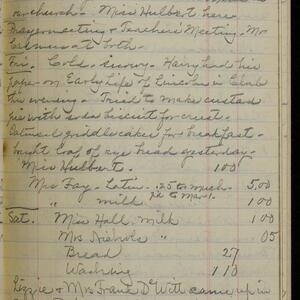 church. Miss Hulbert here
Prayer meeting & Teachers Meeting. Mr
at both.
Fri. Cold - sunny. Harry had his
paper on Early Life of Lincoln in Club
this evening. Tried to make custard
pie with soda biscuit for crust.
Oatmeal griddle cakes for breakfast.
bought loaf of rye bread yesterday.
Miss Hulbert. 100
Mrs Fay. Latin. .25 to Mich. 5.00
" milk pd to Mar 1. 100
Sat. Miss Hall, milk 100
Mrs Nichols .05
Bread 27
Washing 110
Lizzie & Mrs Frank DeWitt came up in